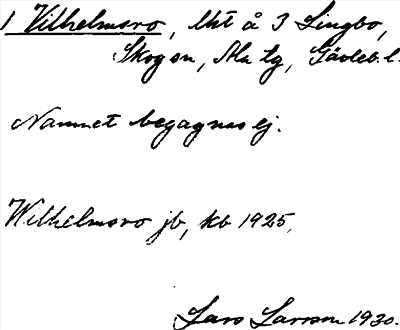 1 Vilhelmsro, lht å 3 Lingbo,
Skogen, Ala tg, Gävleb. l.
Namnet begagnas ej.
Wilhelmsro jb, kb 1925,
Lars Larsson 1930.